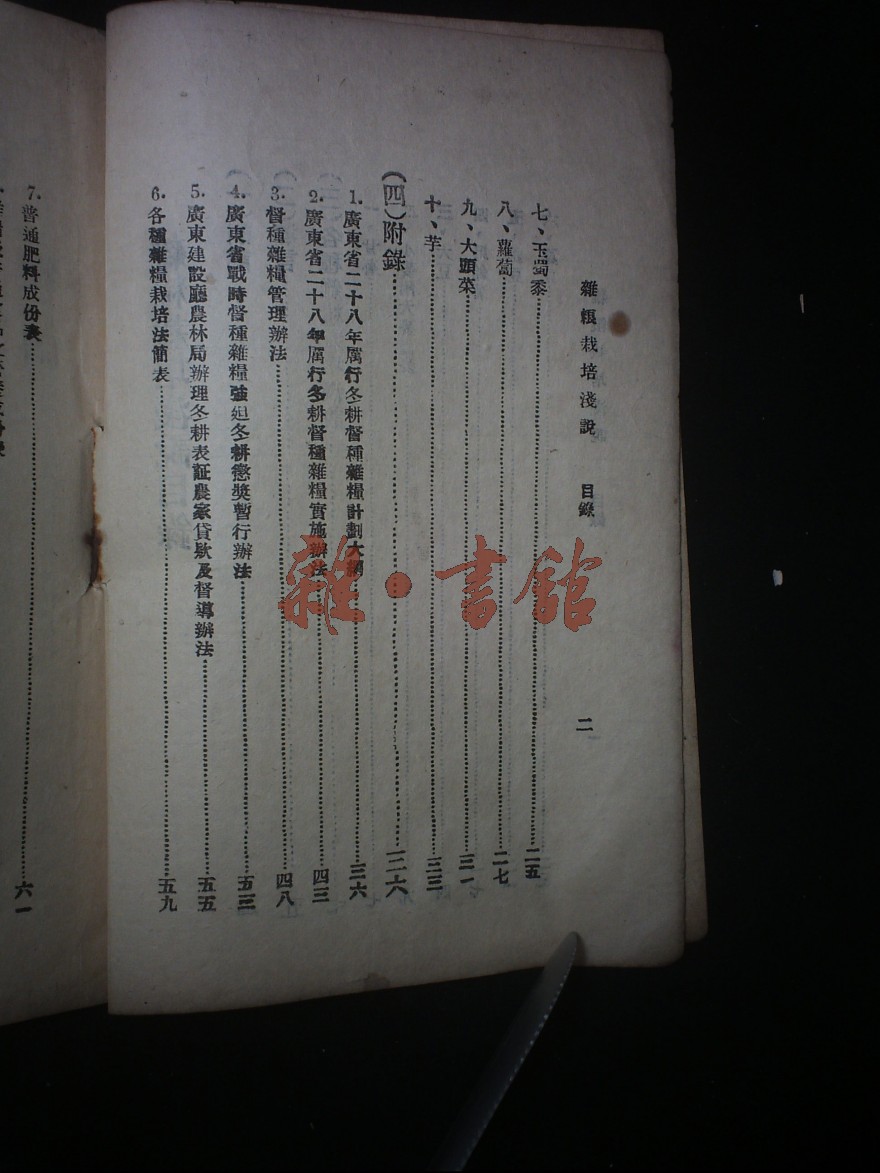 雜粮栽培淺說 目錄 二
七、玉蜀黍……二五
八、蘿蔔……二七
九、大頭菜……三一
十、芋……三三
(四)附錄……三六
1.廣東省二十八年厲行冬耕督種雜糧計劃大綱……三六
2.廣東省二十八年厲行冬耕督種雜糧實施辦法……四三
3.督種雜糧管理辦法……四八
4.廣東省戰時督種雜糧強廹冬耕懲奬暫行辦法……五三
5.廣東建設廳農林局辦理冬耕表証農家貸欵及督導辦法……五五
6.各種雜糧栽培法簡表……五九
7.普通肥料成份表……六一
雜·書館